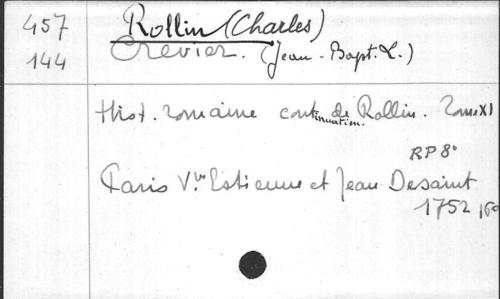 457 Rollin (Charles)
144 Crevier. (Jean-Bapt. L.)
Hist. romaine continuation de Rollin. Tome XI
RP 8°
Paris Vve Estienne et Jean Desaint
1752